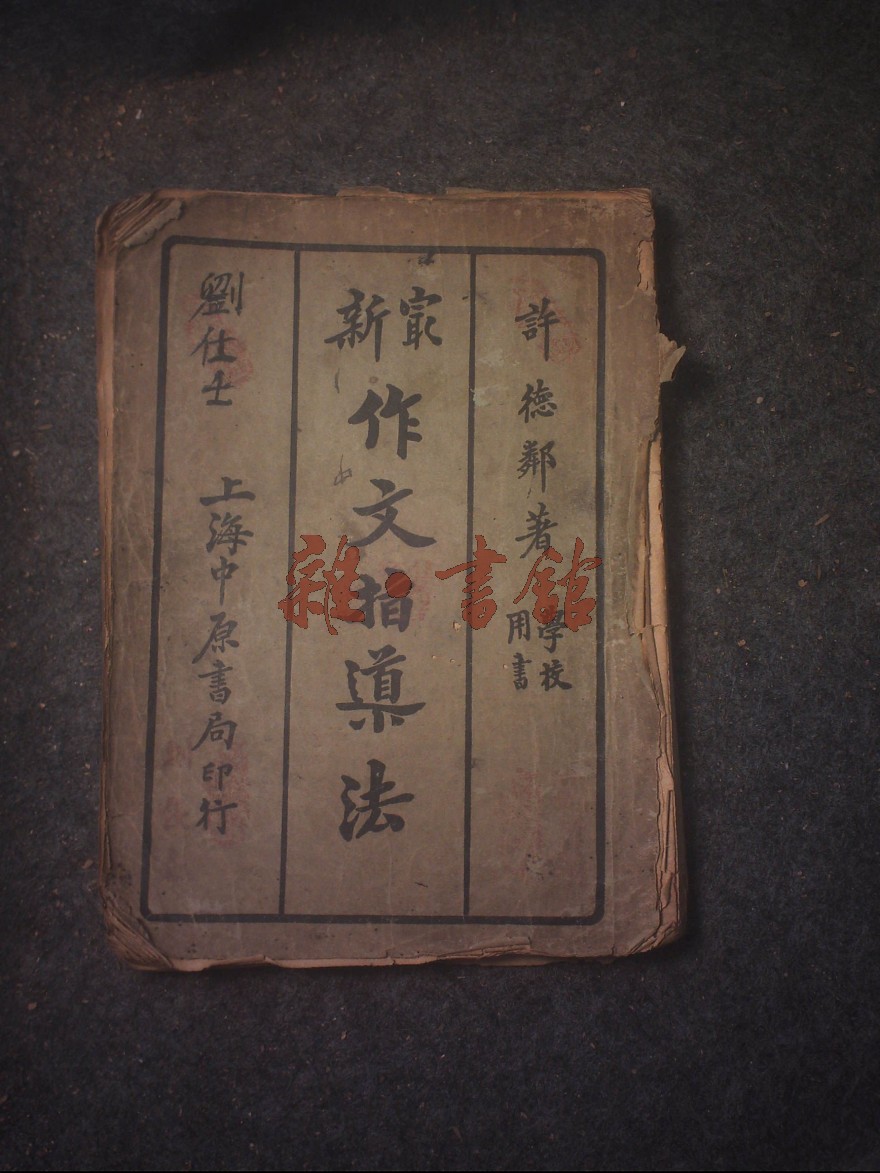 許徳鄰著
學校
用書
㝡新
作文指導法
劉仕
上海中原書局印行
雜·書舘